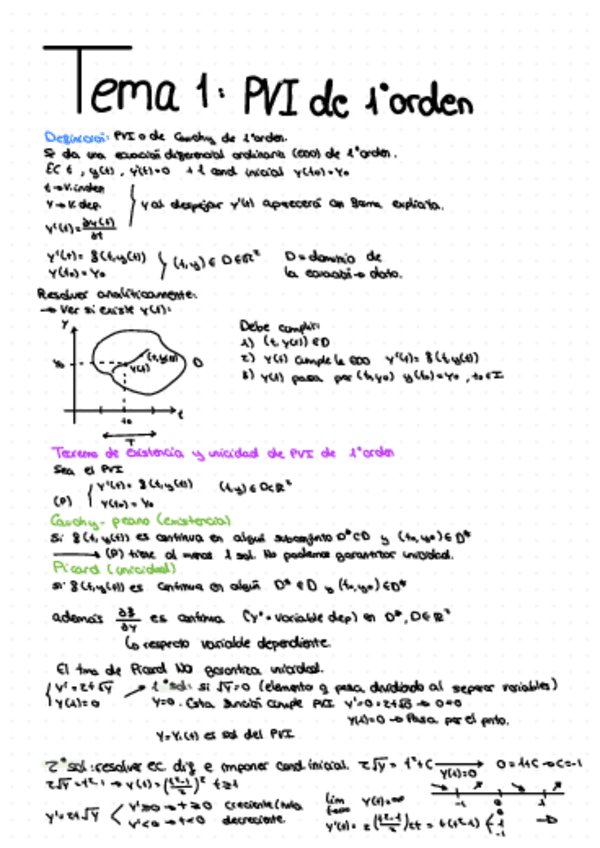 Tema 1: PVI de 1° orden
Definición: PVI o de Cauchy de 1° orden.
Se da una ecuación diferencial ordinaria (EDO) de 1° orden.
EC t, y(t), y'(t)=0 + 1 cond inicial y(t₀)=y₀
t → V. indep
y → V. dep.
y al despejar y'(t) aparecerá en forma explícita.
y'(t) = dy(t)/dt
y'(t) = f(t,y(t))
y(t₀) = y₀
(t,y) ∈ D∈ℝ²
D = dominio de
la ecuación → dato.
Resolver analíticamente:
→ Ver si existe y(t):
y
y₀
(t,y(t))
y(t)
D
t₀
t
I
Debe cumplir:
1) (t, y(t)) ∈ D
2) y(t) cumple la EDO y'(t) = f(t,y(t))
3) y(t) pasa por (t₀,y₀) y(t₀)=y₀, t₀∈I
Teorema de existencia y unicidad de PVI de 1° orden
Sea el PVI
(P) { y'(t) = f(t,y(t))
y(t₀) = y₀
(t,y) ∈ D⊂ℝ²
Cauchy - peano (existencia)
Si f(t,y(t)) es continua en algún subconjunto D*⊂D y (t₀,y₀)∈D*
→ (P) tiene al menos 1 sol. No podemos garantizar unicidad.
Picard (unicidad)
si f(t,y(t)) es continua en algún D* ⊂ D y (t₀,y₀) ∈D*
además ∂f/∂y es continua (y = variable dep) en D*, D∈ℝ²
↳ respecto variable dependiente.
El tma de Picard NO garantiza unicidad.
{ y' = 2t√y
y(1)=0
→ 1ª sol: si √y=0 (elemento q pasa dividiendo al separar variables)
y=0. Esta función cumple PVI y'=0=2t√0 → 0=0
y(1)=0 → Pasa por el pnto.
y=y₁(t) es sol del PVI
2ª sol: resolver ec dif e imponer cond inicial. 2√y = t²+C → y(1)=0 0=1+C → C=-1
2√y = t²-1 → y(t) = ((t²-1)/2)² t≥1
y' = 2t√y < y'≥0 → t≥0 creciente
y'<0 → t<0 decreciente.
lim y(t)=∞
y'(t) = 2((t²-1)/2)2t = t(t²-1) { 0 1 -1
-1 0 1